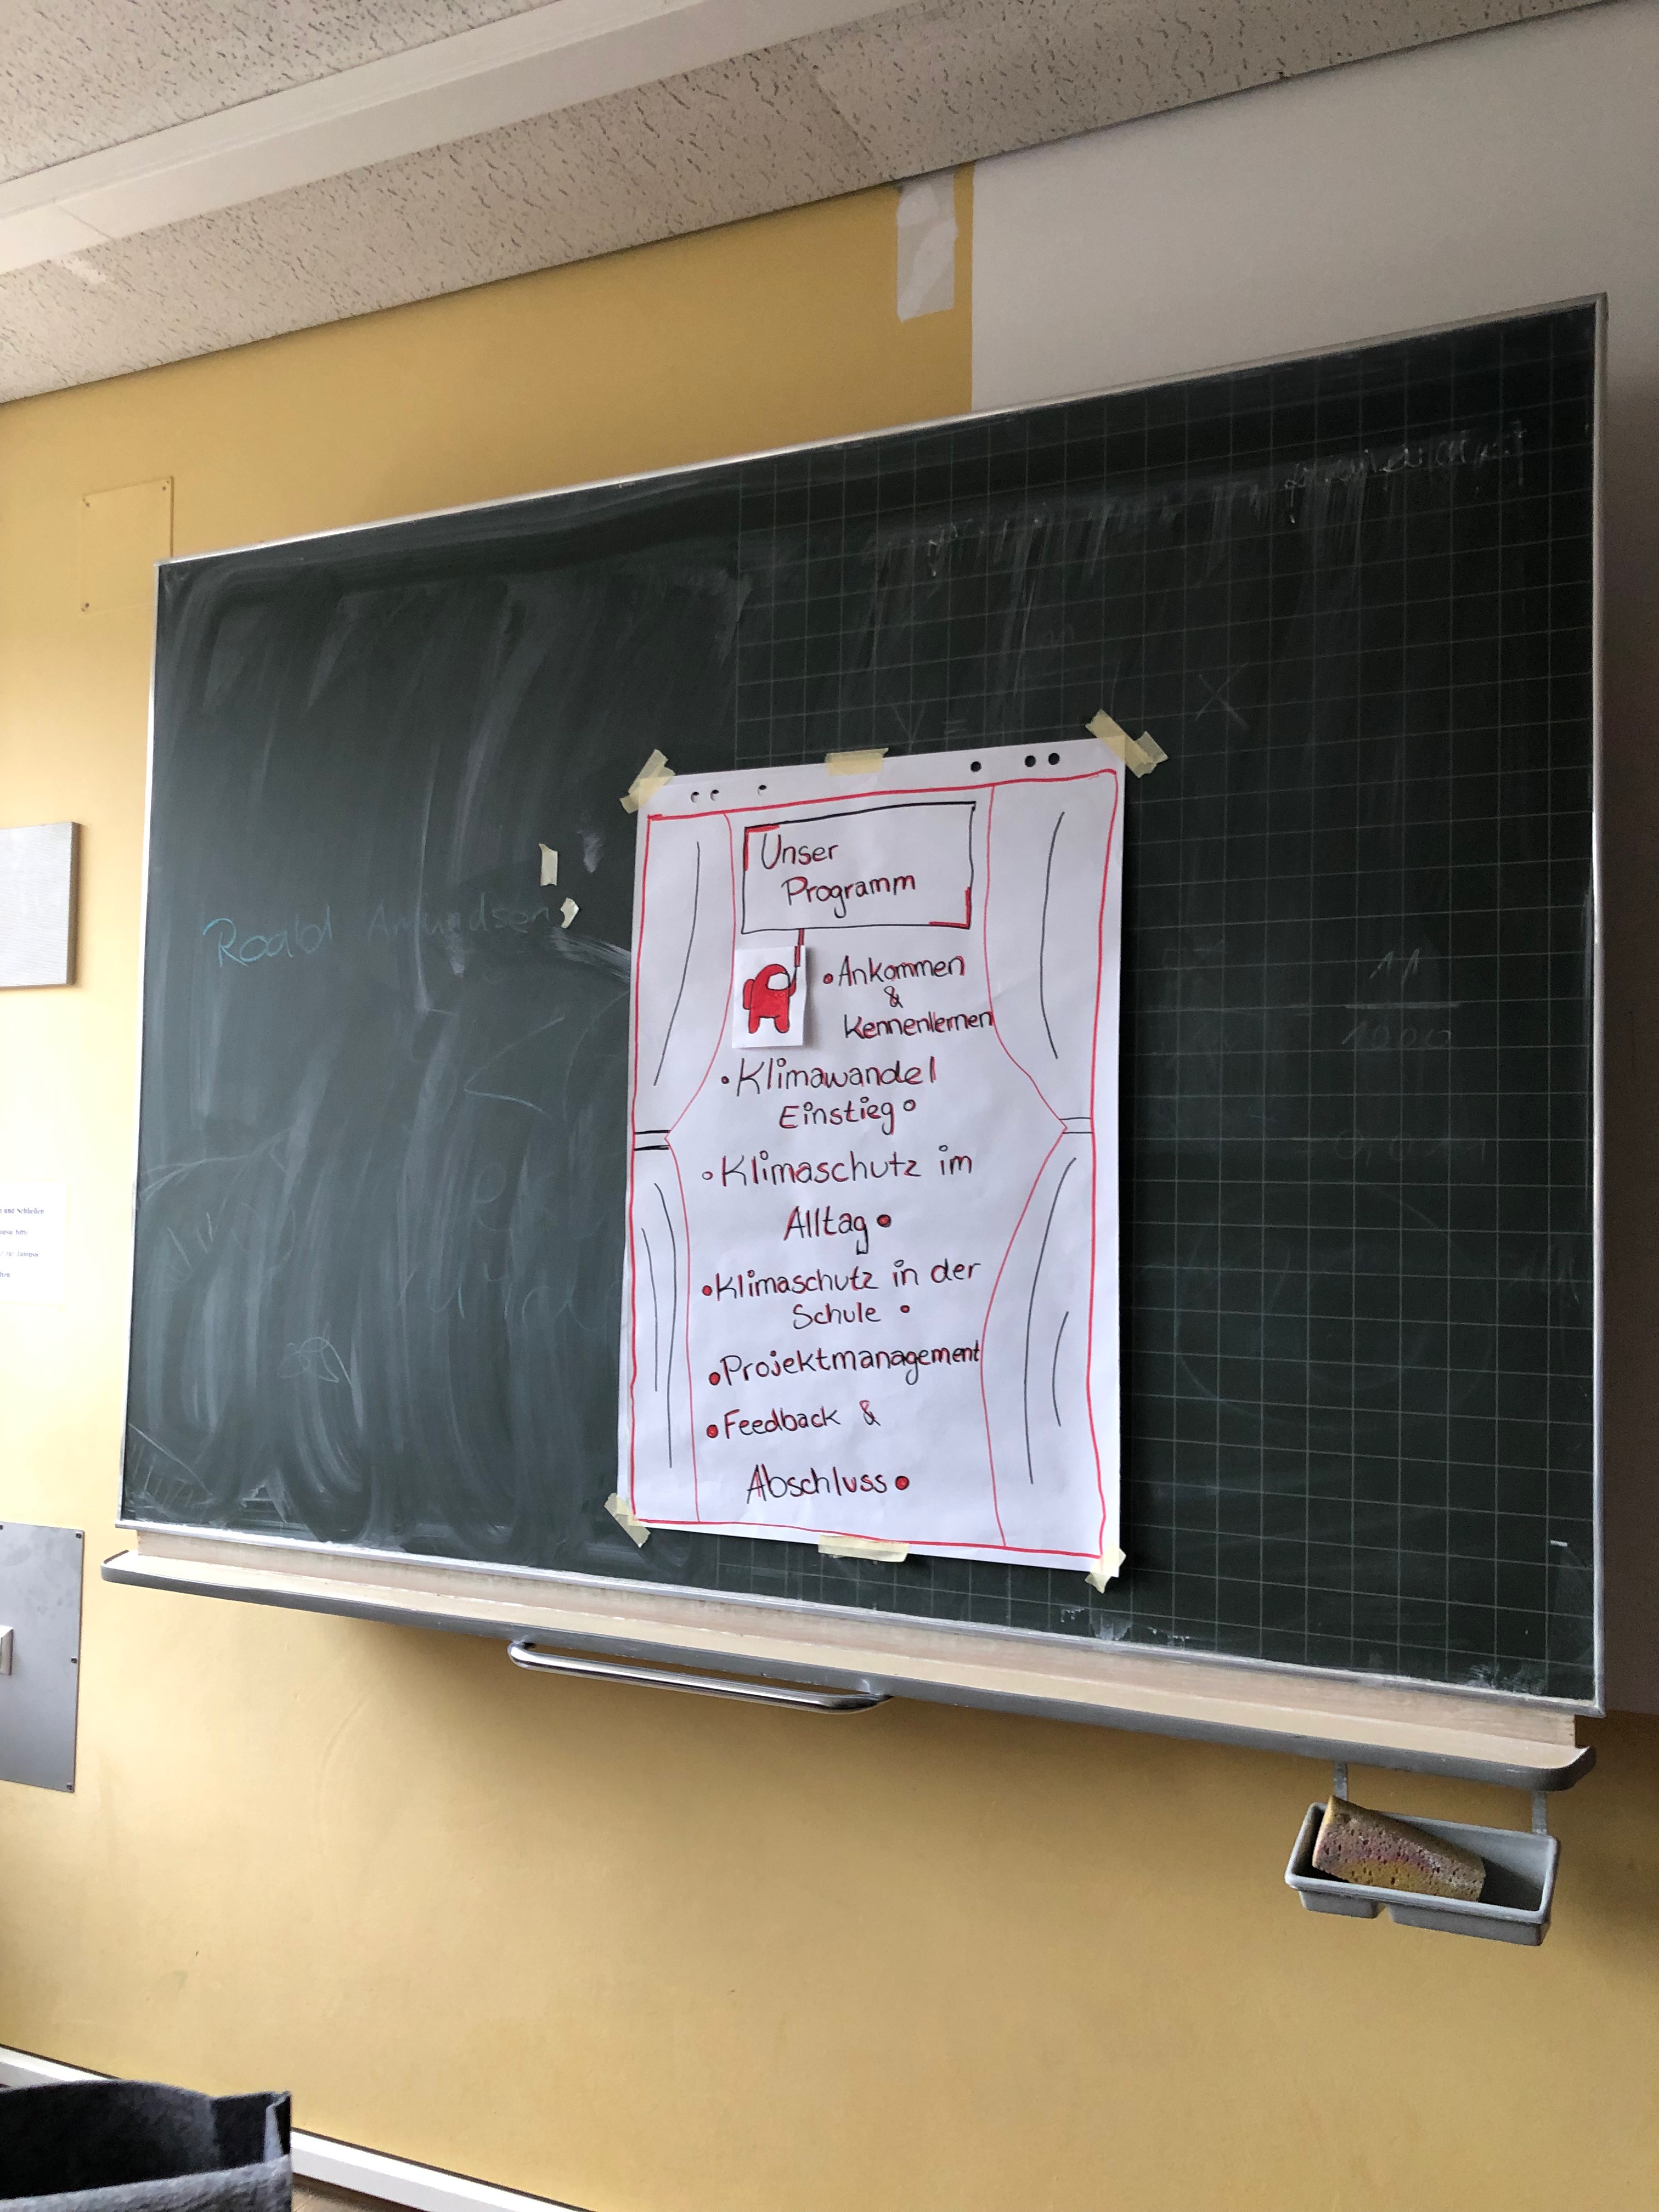 Roald Amundsen
Unser
Programm
• Ankommen
&
Kennenlernen
• Klimawandel
Einstieg •
• Klimaschutz im
Alltag •
• Klimaschutz in der
Schule •
• Projektmanagement
• Feedback &
Abschluss •
11
1000